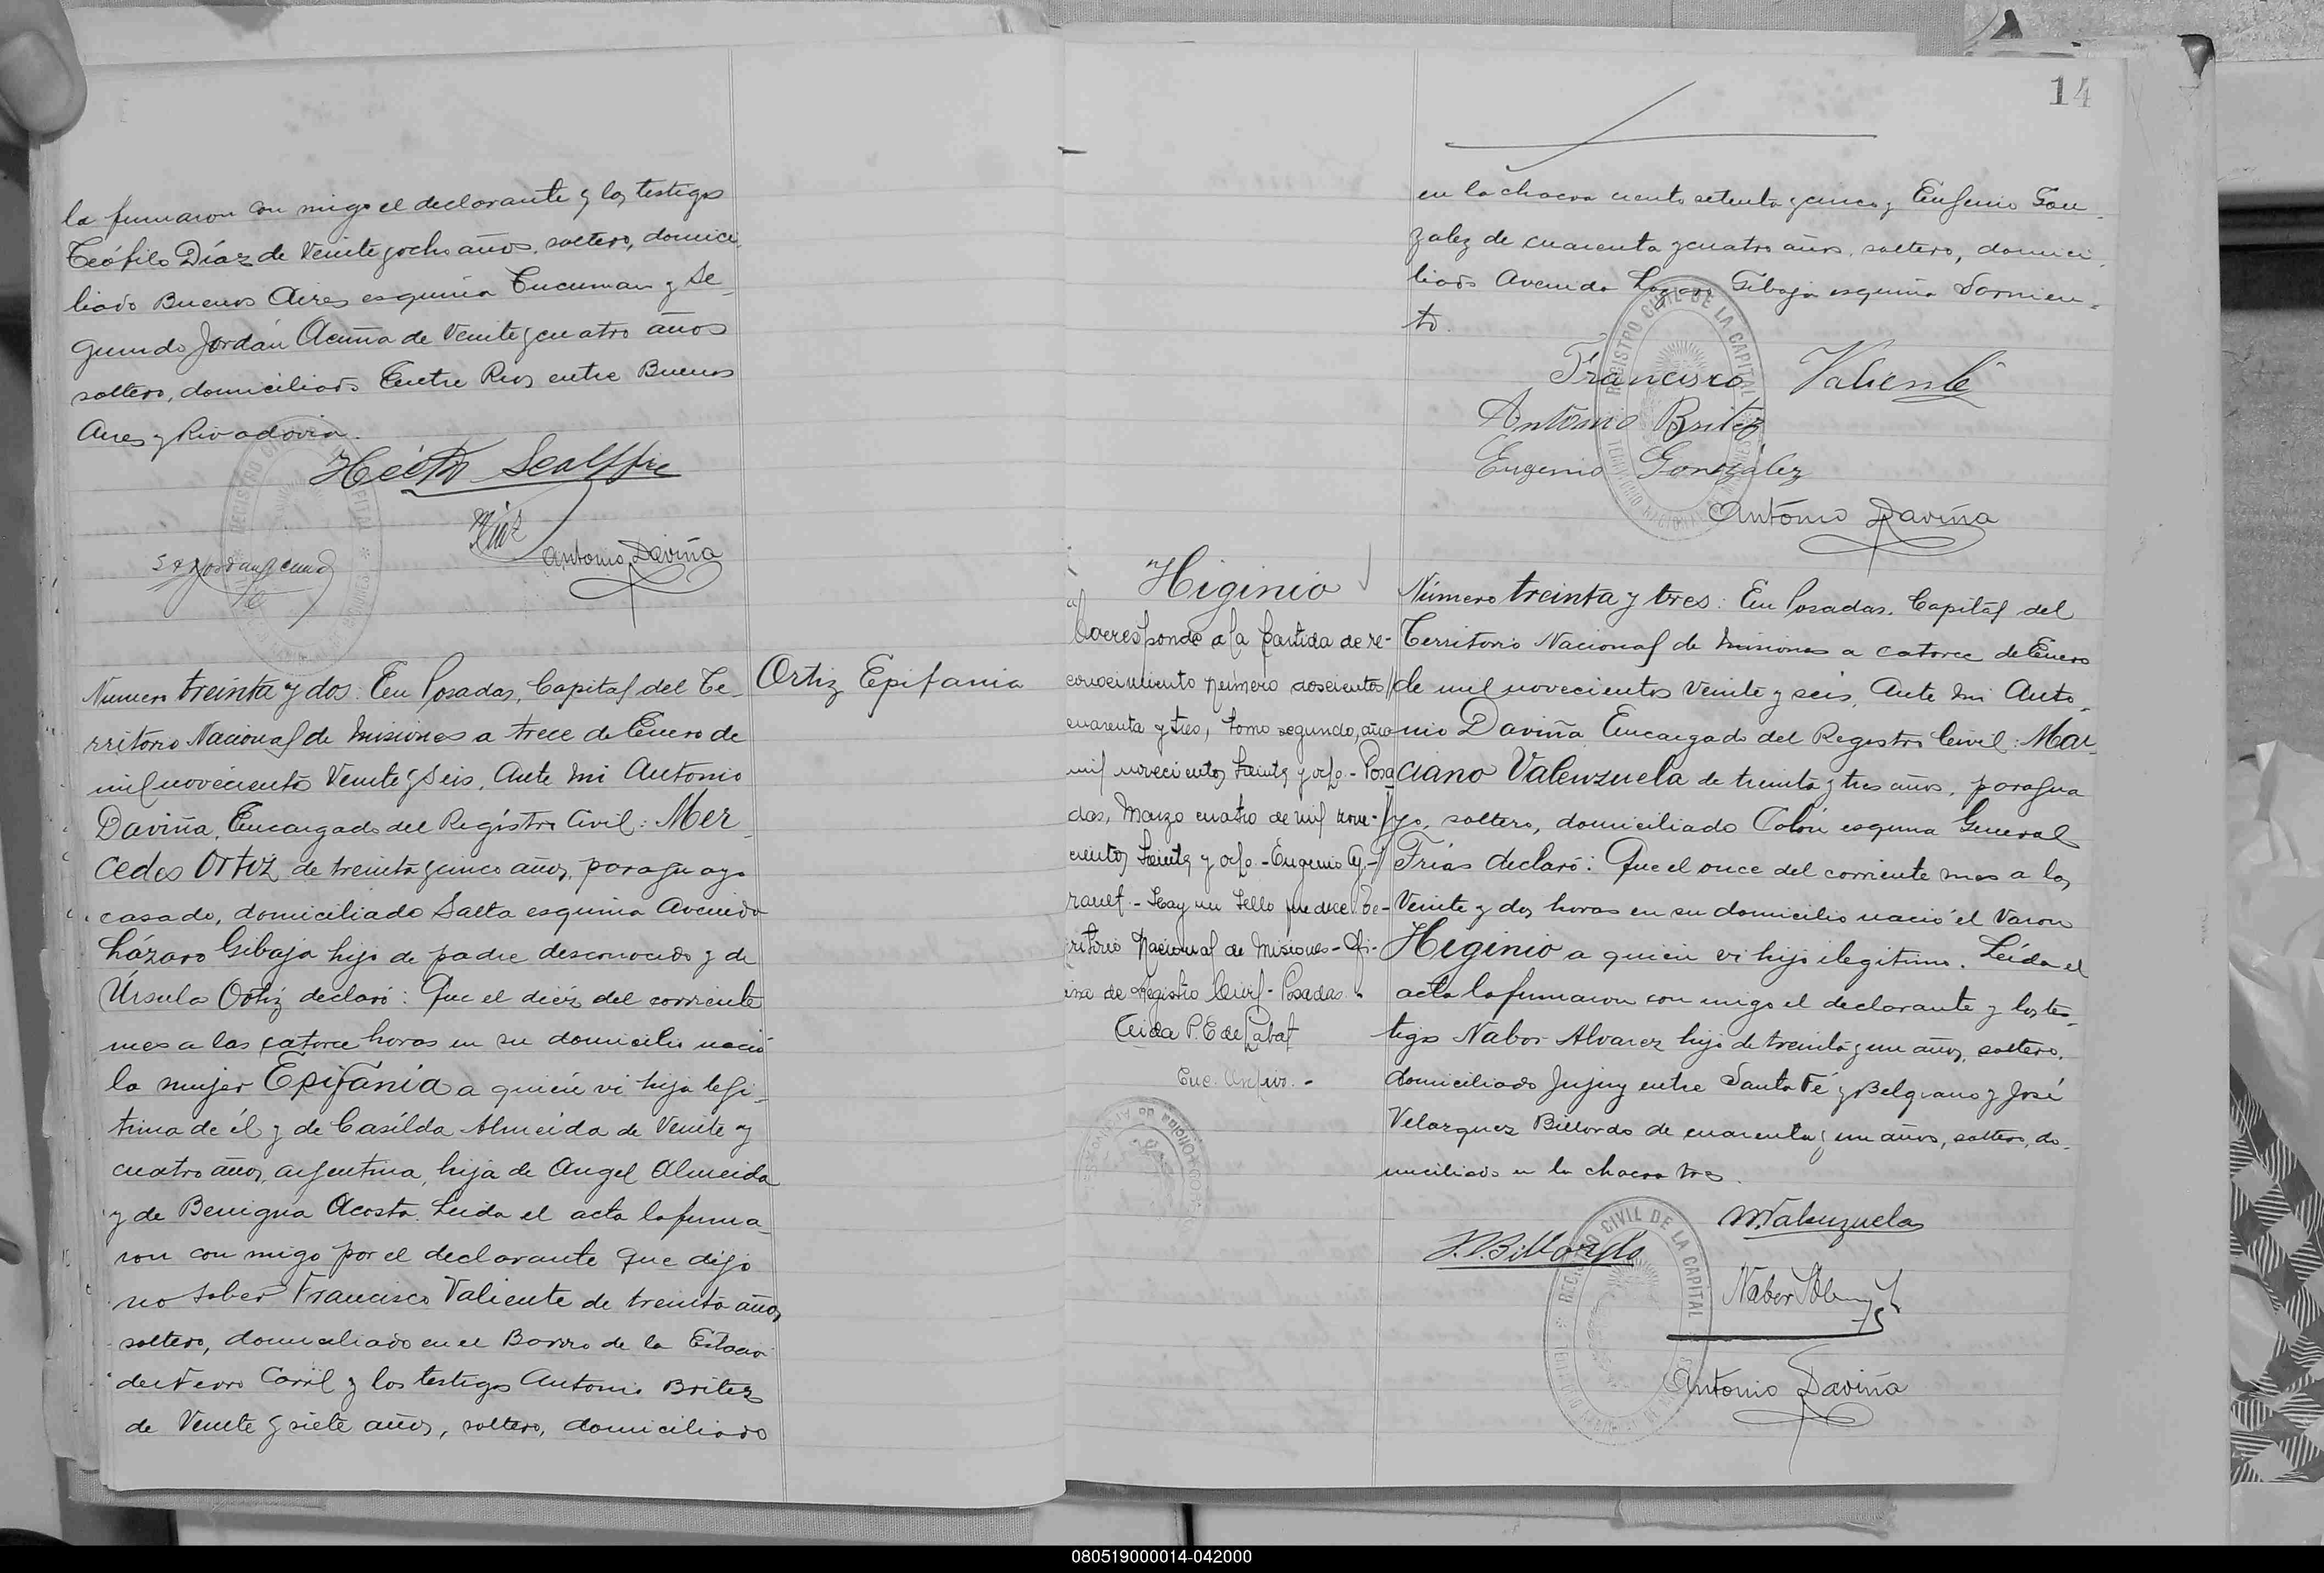 la firmaron con migo el declarante y los testigos
Teófilo Díaz de Veinte y ocho años, soltero, domici
liado Buenos Aires esquina Tucuman y Se-
gundo Jordán Acuña de Veinte y cuatro años
soltero, domiciliado Entre Rios entre Buenos
Aires y Rivadavia.
Díaz
Antonio Daviña
Numero treinta y dos: En Posadas, Capital del Te-
rritorio Nacional de Misiones a trece de Enero de
mil novecientos Veinte y seis, Ante mi Antonio
Daviña, Encargado del Registro Civil: Mer-
cedes Ortiz de treinta y cinco años, paraguayo
casado, domiciliado Salta esquina Avenida
Lázaro Gibaja hijo de padre desconocido y de
Úrsula Ortiz declaró: Que el diez del corriente
mes a las catorce horas en su domicilio nació
la mujer Epifanía a quien vi hija legi-
tima de él y de Casílda Almeida de Veinte y
cuatro años, argentina, hija de Angel Almeida
y de Benigna Acosta. Leída el acta la firma-
ron con migo por el declarante que dijo
no saber Francisco Valiente de treinta años,
soltero, domiciliado en el Barrio de la Estación
del Ferro Carril y los testigos Antonio Britez
de Veinte y siete años, soltero, domiciliado
Ortiz Epifania
14
en la chacra ciento setenta y cinco y Eugenio Gon-
zalez de cuarenta y cuatro años, soltero, domici-
liado Avenida Lazaro Gibaja esquina Sarmien-
to.
Francisco Valiente
Antonio Britez
Eugenio González
Antonio Daviña
REGISTRO CIVIL DE LA CAPITAL
Higinio
Corresponde a la partida de re-
conocimiento número doscientos
cuarenta y tres, tomo segundo, año
mil novecientos treinta y ocho.- Posa
das, Marzo cuatro de mil nove-
cientos treinta y ocho.- Eugenio
Hay un sello que dice: Te-
rritorio Nacional de Misiones - Ofi-
cina de Registro Civil - Posadas.
Número treinta y tres: En Posadas, Capital del
Territorio Nacional de Misiones a catorce de Enero
de mil novecientos Veinte y seis, Ante mi Anto-
nio Daviña Encargado del Registro Civil: Mar-
ciano Valenzuela de treinta y tres años, paragua
yo, soltero, domiciliado Colón esquina General
Frías declaró: Que el once del corriente mes a las
Veinte y dos horas en su domicilio nació el Varon
Higinio a quien vi hijo ilegitimo. Leída el
acta la firmaron con migo el declarante y los tes-
tigos Nabor Alvarez hijo de treinta y un años, soltero,
domiciliado Jujuy entre Santa Fé y Belgrano y José
Velazquez Billordo de cuarenta y un años, soltero, do-
miciliado en la chacra tres.
M. Valenzuela
J.V. Billordo
Antonio Daviña
REGISTRO CIVIL DE LA CAPITAL
080519000014-042000